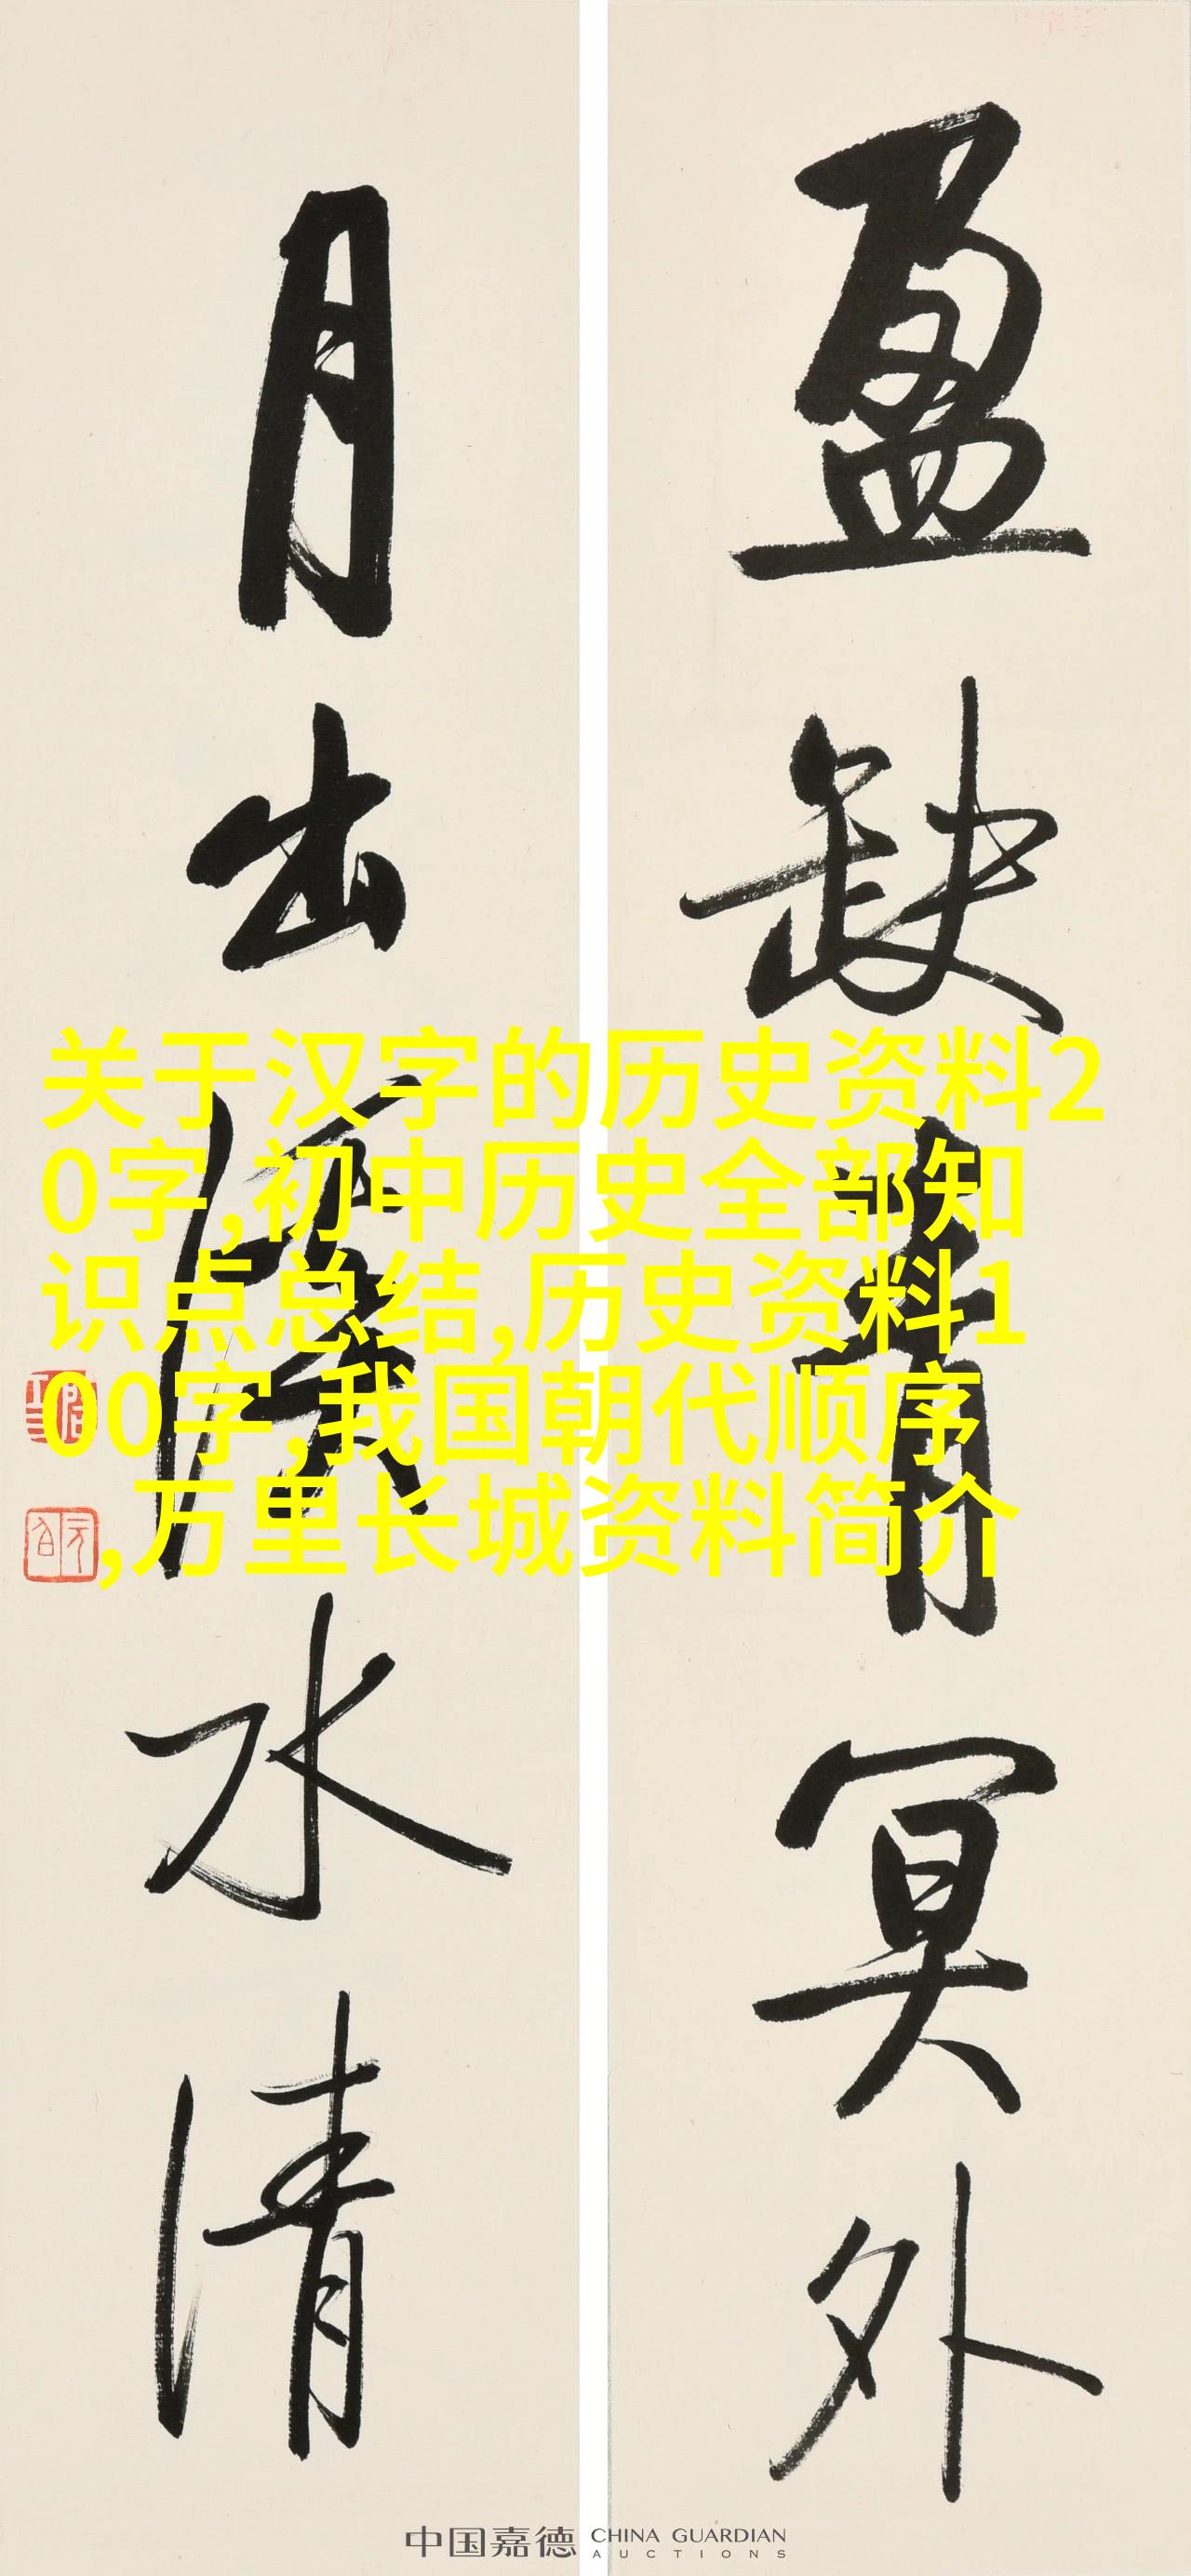 盈缺青冥外
月出深水清
关于汉字的历史资料2
0字,初中历史全部知
识点总结,历史资料1
00字,我国朝代顺序
,万里长城资料简介
中国嘉德 CHINA GUARDIAN
AUCTIONS